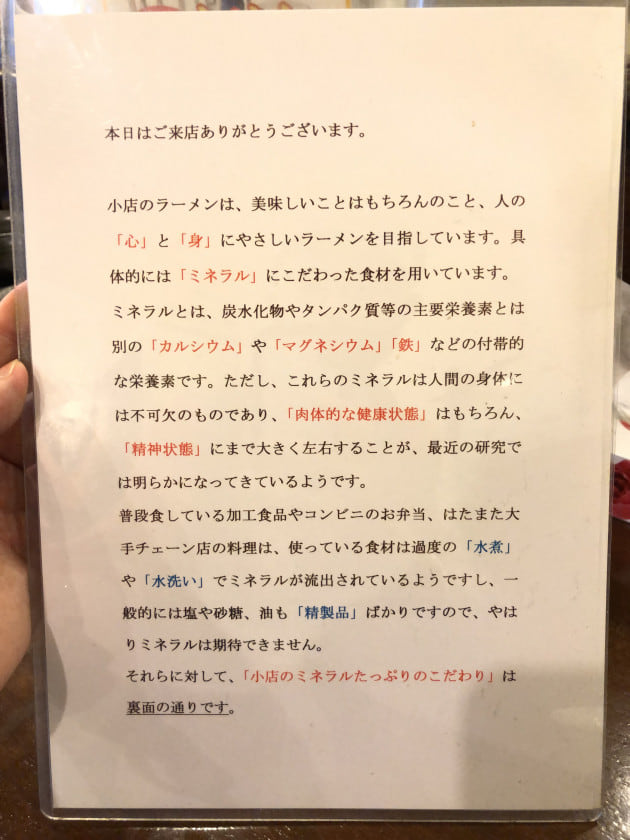 本日はご来店ありがとうございます。
小店のラーメンは、美味しいことはもちろんのこと、人の
「心」と「身」にやさしいラーメンを目指しています。具
体的には「ミネラル」にこだわった食材を用いています。
ミネラルとは、炭水化物やタンパク質等の主要栄養素とは
別の「カルシウム」や「マグネシウム」「鉄」などの付帯的
な栄養素です。ただし、これらのミネラルは人間の身体に
は不可欠のものであり、「肉体的な健康状態」はもちろん、
「精神状態」にまで大きく左右することが、最近の研究で
は明らかになってきているようです。
普段食している加工食品やコンビニのお弁当、はたまた大
手チェーン店の料理は、使っている食材は過度の「水煮」
や「水洗い」でミネラルが流出されているようですし、一
般的には塩や砂糖、油も「精製品」ばかりですので、やは
りミネラルは期待できません。
それらに対して、「小店のミネラルたっぷりのこだわり」は
裏面の通りです。